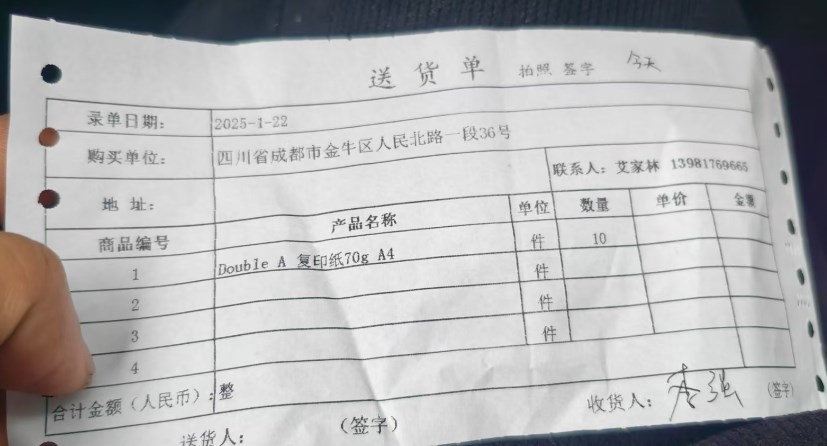 送货单 拍照 签字 今天
录单日期: 2025-1-22
购买单位: 四川省成都市金牛区人民北路一段36号
地 址: 联系人: 艾家林 13981769665
商品编号 产品名称 单位 数量 单价 金额
1 Double A 复印纸70g A4 件 10
2 件
3 件
4 件
合计金额(人民币): 整
送货人: (签字) 收货人: 李强 (签字)